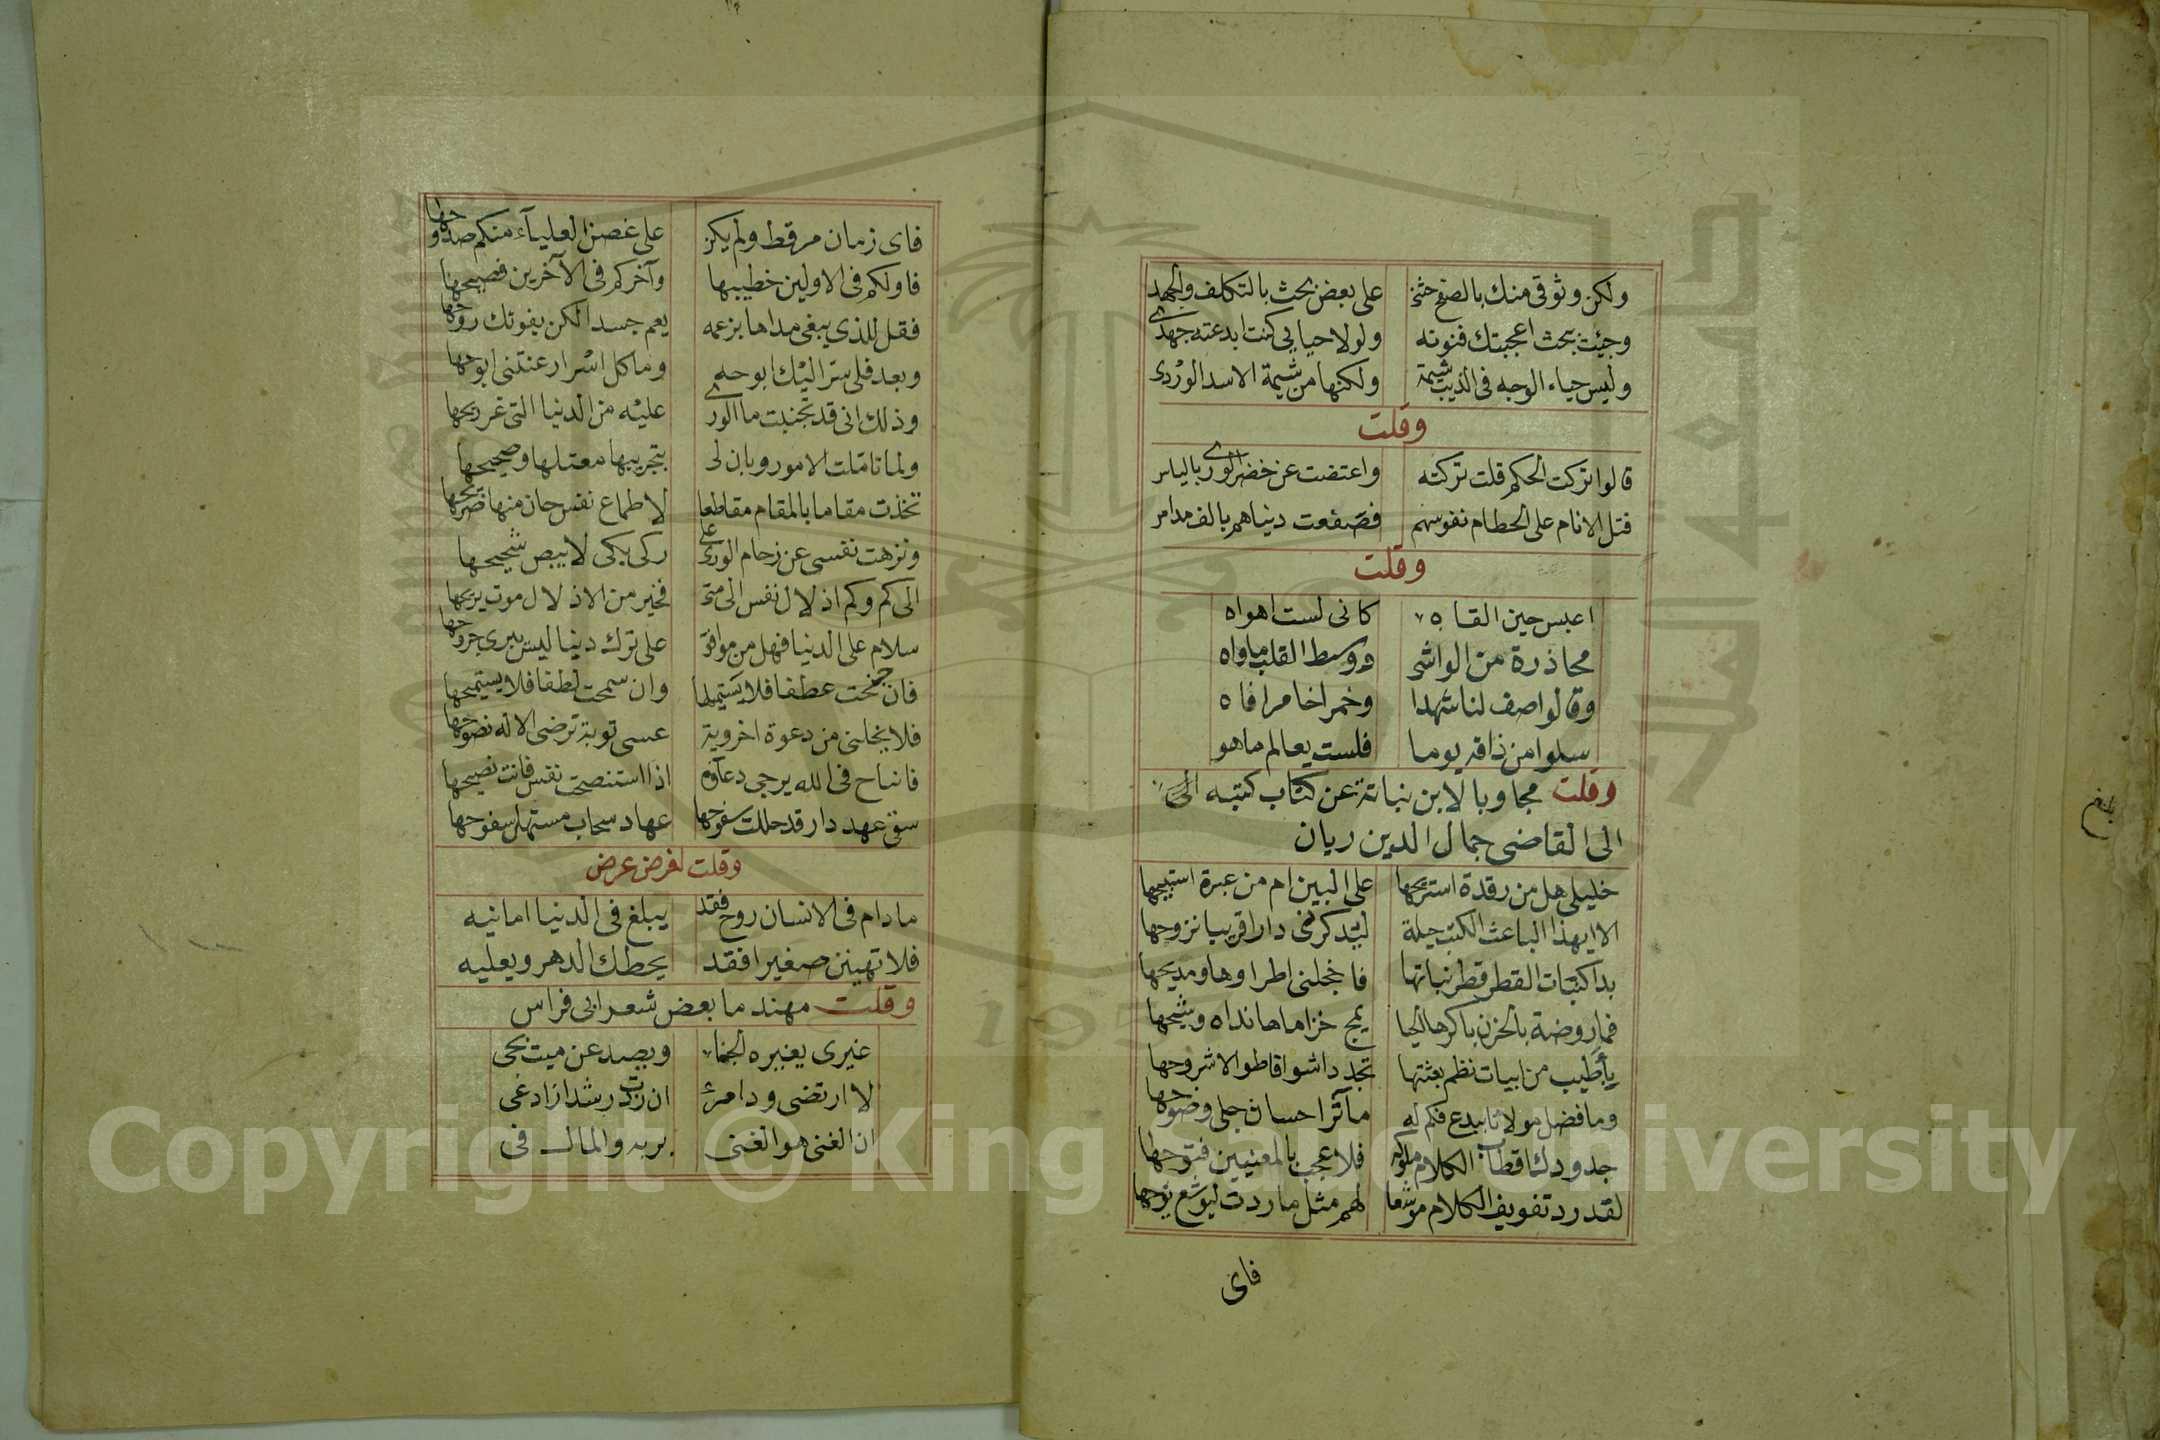 ولكن وثوقى منك بالصفح حثنى على بعض بحث بالتكلف والجهد
وجيئت ببحث اعجبتك فنونه ولولا حيايى كنت ابدعته جهدى
وليس حياء الوجه فى الذيب شيمة ولكنها من شيمة الاسد الوردى
وقلت
قالوا تركت الحكم قلت تركته واعتضت عن خضر الورى بالياس
قتل الانام على الحطام نفوسهم فصفعت دنياهم بالف مداس
وقلت
اعبس حين القاه كانى لست اهواه
محاذرة من الواشى ووسط القلب ماواه
وقالوا صف لنا شهدا وخمرا خامرا فاه
سلوا من ذاقه يوما فلست بعالم ماهو
وقلت مجاوبا لابن نباتة عن كتاب كتبه الى
الى القاضى جمال الدين ريان
خليلى هل من رقدة استريحها على البين ام من عبرة استبيحها
الا ايهذا الباعث الكتب حيلة لتذكرنى دارا قريبا نزوحها
بدا كتبات القطر قطر نباتها فاخجلنى اطراوها ومديحها
فما روضة بالحزن باكرها الحيا يمج خزاماها نداه وشيحها
باطيب من ابيات نظم بعثتها تجدد اشواقا طوالا شروحها
وما فضل مولانا ببدع فكم له مآثر احسان جلى وضوحها
جدودك اقطاب الكلام ملوكه فلا عجب بالمعنيين فتوحها
لقد رد تفويف الكلام موشعا لهم مثل ما ردت ليوشع يوحها
فاى
بلغ
فاى زمان مر قط ولم يكن على غصن العلياء منكم صدوحها
فاولكم فى الاولين خطيبها وآخركم فى الآخرين فصيحها
فقل للذى يبغى مداها بزعمه يعم جسدا لكن يفوتك روحها
وبعد فلى سر اليك ابوحه وما كل اسرار عنتنى ابوحها
وذلك انى قد تجنبت ما الورى عليه من الدنيا التى غر ريحها
ولما تاملت الامور وبان لى بتجريبها معتلها وصحيحها
تخذت مقاما بالمقام مقاطعا لاطماع نفس حان منها ضريحها
ونزهت نفسى عن زحام الورى على ركى بكى لا يبص شحيحها
الى كم وكم اذلال نفس الى متى فخير من الاذلال موت يريحها
سلام على الدنيا فهل من موافق على ترك دنيا ليس يبرى جروحها
فان جنحت عطفا فلا يستميلها وان سمحت لطفا فلا يستميحها
فلا يخلنى من دعوة اخروية عسى توبة ترضى الاله نصوحها
فانباح فى الله يرجى دعاؤه اذا استنصحت نفس فانت نصيحها
سقى عهد دار قد حللت سفوحها عهاد سحاب مستهل سفوحها
وقلت لغرض عرض
ما دام فى الانسان روح فقد يبلغ فى الدنيا امانيه
فلا تهينن صغيرا فقد يحطك الدهر ويعليه
وقلت مهند ما بعض شعر ابى فراس
غيرى يغيره الجفاء ويصد عن ميت بحى
لا ارتضى ودامرئ ان زدت رشدا زاد غى
ان الغنى هو الغنى بربه والمال فى
Copyright © King Saud University